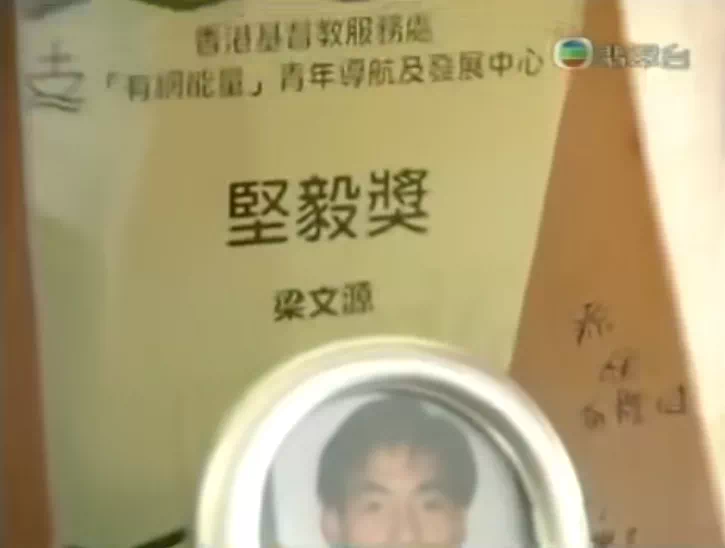 香港基督教服務處
「有網能量」青年導航及發展中心
翡翠台
堅毅獎
梁文源